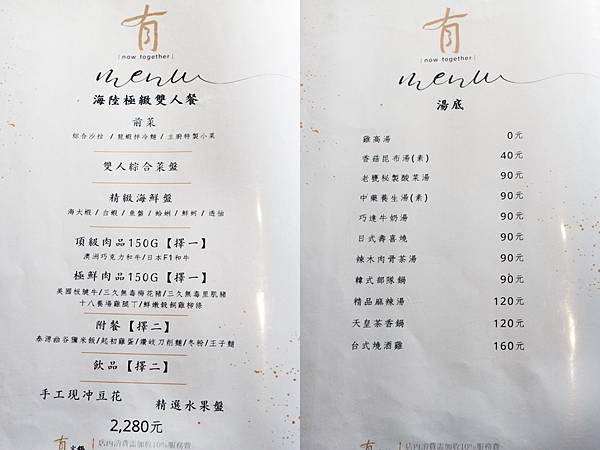 有
now together
menu
海陸極緻雙人餐
前菜
綜合沙拉 / 龍蝦拌冷麵 / 主廚特製小菜
雙人綜合菜盤
精緻海鮮盤
海大蝦 / 白蝦 / 魚盤 / 蛤蜊 / 鮮蚵 / 透抽
頂級肉品150G【擇一】
澳洲巧克力和牛/日本F1和牛
極鮮肉品150G【擇一】
美國板腱牛/三久無毒梅花豬/三久無毒里肌豬
十八養場雞腿丁/鮮嫩穀飼雞柳條
附餐【擇二】
泰源幽谷獼米飯/起初雞蛋/讚岐刀削麵/冬粉/王子麵
飲品【擇二】
手工現冲豆花
精選水果盤
2,280元
店內消費需加收10%服務費
有
now together
menu
湯底
雞高湯 0元
香菇昆布湯(素) 40元
老甕秘製酸菜湯 90元
中藥養生湯(素) 90元
巧達牛奶湯 90元
日式壽喜燒 90元
辣木肉骨茶湯 90元
韓式部隊鍋 90元
精品麻辣湯 120元
天皇茶香鍋 120元
台式燒酒雞 160元
店內消費需加收10%服務費